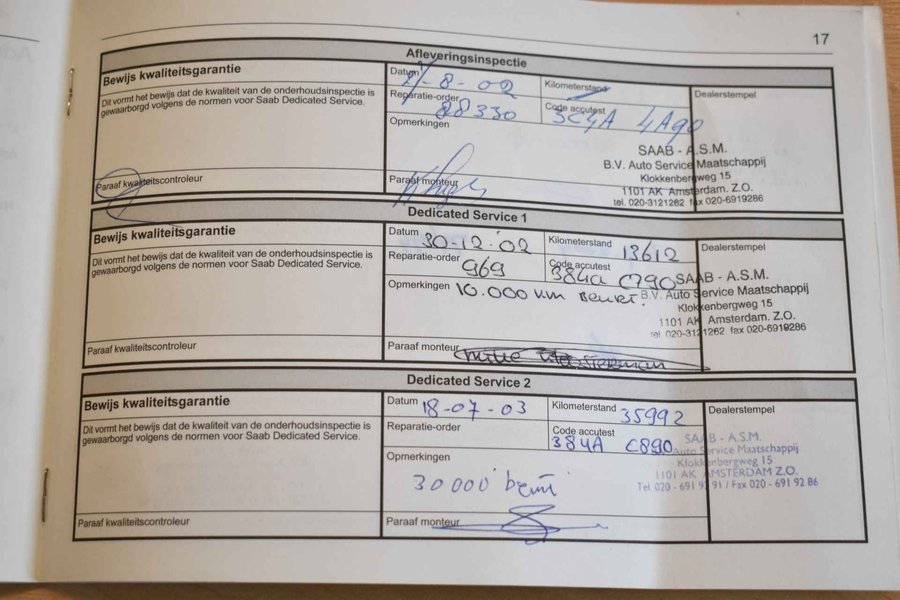 17
Afleveringsinspectie
Bewijs kwaliteitsgarantie
Dit vormt het bewijs dat de kwaliteit van de onderhoudsinspectie is
gewaarborgd volgens de normen voor Saab Dedicated Service.
Paraaf kwaliteitscontroleur
Datum -8-02
Kilometerstand
Reparatie-order 88330
Code accutest 3C4A 4A90
Opmerkingen
Paraaf monteur
Dealerstempel
SAAB - A.S.M.
B.V. Auto Service Maatschappij
Klokkenbergweg 15
1101 AK Amsterdam. Z.O.
tel. 020-3121262 fax 020-6919286
Dedicated Service 1
Bewijs kwaliteitsgarantie
Dit vormt het bewijs dat de kwaliteit van de onderhoudsinspectie is
gewaarborgd volgens de normen voor Saab Dedicated Service.
Paraaf kwaliteitscontroleur
Datum 30-12-'02
Kilometerstand 13612
Reparatie-order 969
Code accutest 384a C790
Opmerkingen 10.000 km Beurt.
Paraaf monteur
Dealerstempel
SAAB - A.S.M.
B.V. Auto Service Maatschappij
Klokkenbergweg 15
1101 AK Amsterdam. Z.O.
tel. 020-3121262 fax 020-6919286
Dedicated Service 2
Bewijs kwaliteitsgarantie
Dit vormt het bewijs dat de kwaliteit van de onderhoudsinspectie is
gewaarborgd volgens de normen voor Saab Dedicated Service.
Paraaf kwaliteitscontroleur
Datum 18-07-03
Kilometerstand 35992
Reparatie-order
Code accutest 384A C890
Opmerkingen
30000 beurt
Paraaf monteur
Dealerstempel
SAAB - A.S.M.
Auto Service Maatschappij
Klokkenbergweg 15
1101 AK AMSTERDAM Z.O.
Tel. 020 - 691 92 91 / Fax 020 - 691 92 86